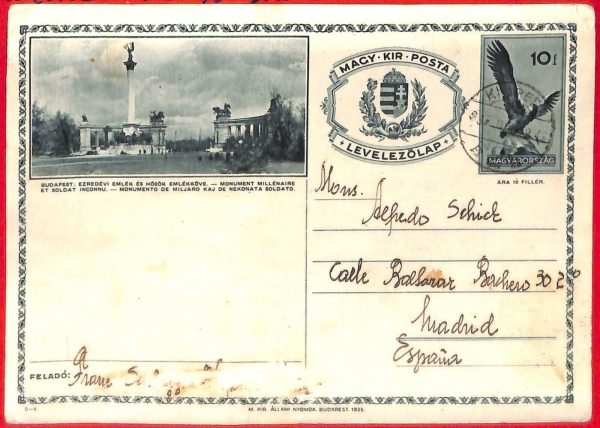 BUDAPEST: EZREDÉVI EMLÉK ÉS HŐSÖK EMLÉKKÖVE. — MONUMENT MILLÉNAIRE
ET SOLDAT INCONNU. — MONUMENTO DE MILJARO KAJ DE NEKONATA SOLDATO.
MAGY · KIR · POSTA
LEVELEZŐLAP
10
MAGYARORSZÁG
ÁRA 10 FILLÉR.
Mons.
Alfredo Schick
Calle Baltasar Bachero 30 2º
Madrid
España
FELADÓ:
0—4
M. KIR. ÁLLAMI NYOMDA. BUDAPEST. 1935.